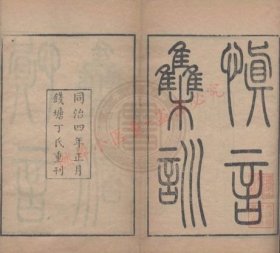 慎言
雧訓
同治四年正月
錢塘丁氏重刊